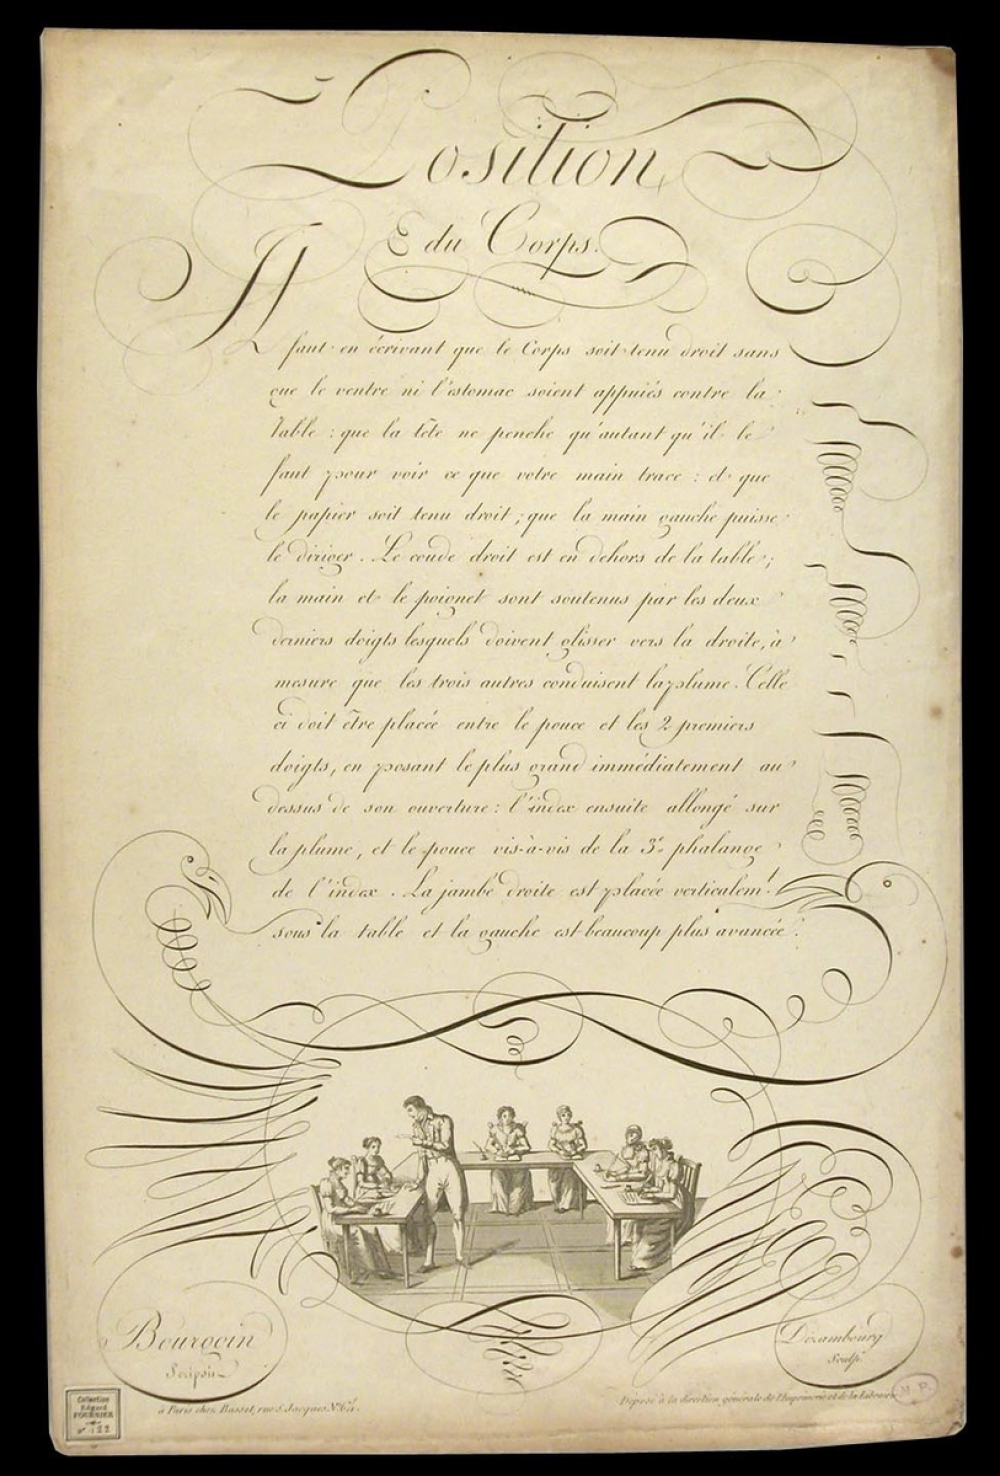 Position
du Corps.
Il
faut en écrivant que le Corps soit tenu droit sans
que le ventre ni l'estomac soient appuiés contre la
Table : que la tête ne penche qu'autant qu'il le
faut pour voir ce que votre main trace : et que
le papier soit tenu droit ; que la main gauche puisse
le diriger . Le coude droit est en dehors de la table ;
la main et le poignet sont soutenus par les deux
derniers doigts lesquels doivent glisser vers la droite, à
mesure que les trois autres conduisent la plume . Celle
ci doit être placée entre le pouce et les 2 premiers
doigts, en posant le plus grand immédiatement au
dessus de son ouverture : l'index ensuite allongé sur
la plume, et le pouce vis-à-vis de la 3e phalange
de l'index . La jambe droite est placée verticalem.t
sous la table et la gauche est beaucoup plus avancée .
Bourgoin
Scripsit
Dizambourg
Sculp.
à Paris chez Basset, rue S. Jacques N.° 64.
Déposé à la direction générale de l'Imprimerie et de la Librairie
Collection
Edgard
FOURNIER
n° 122